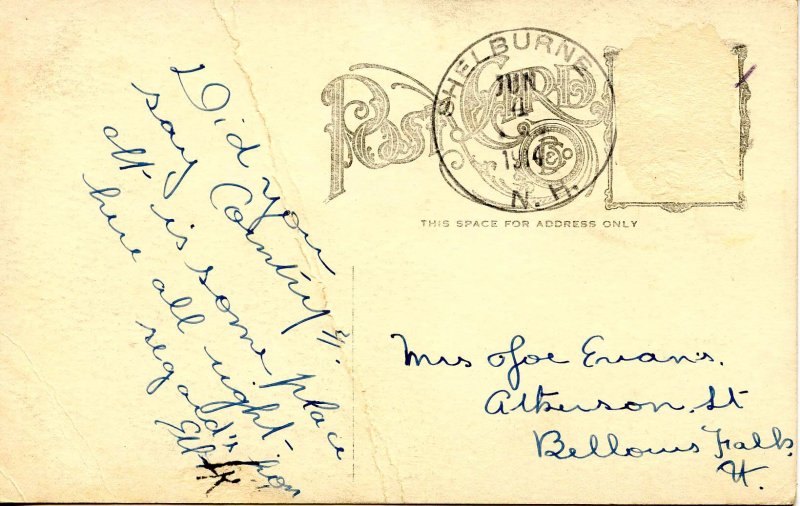 Did you
say Country
It is some place
here all right -
regard's from
Post Card
SHELBURNE
JUN
4
1914
N. H.
THIS SPACE FOR ADDRESS ONLY
Mrs Joe Evans.
Atkinson. St
Bellows Falls.
Vt.